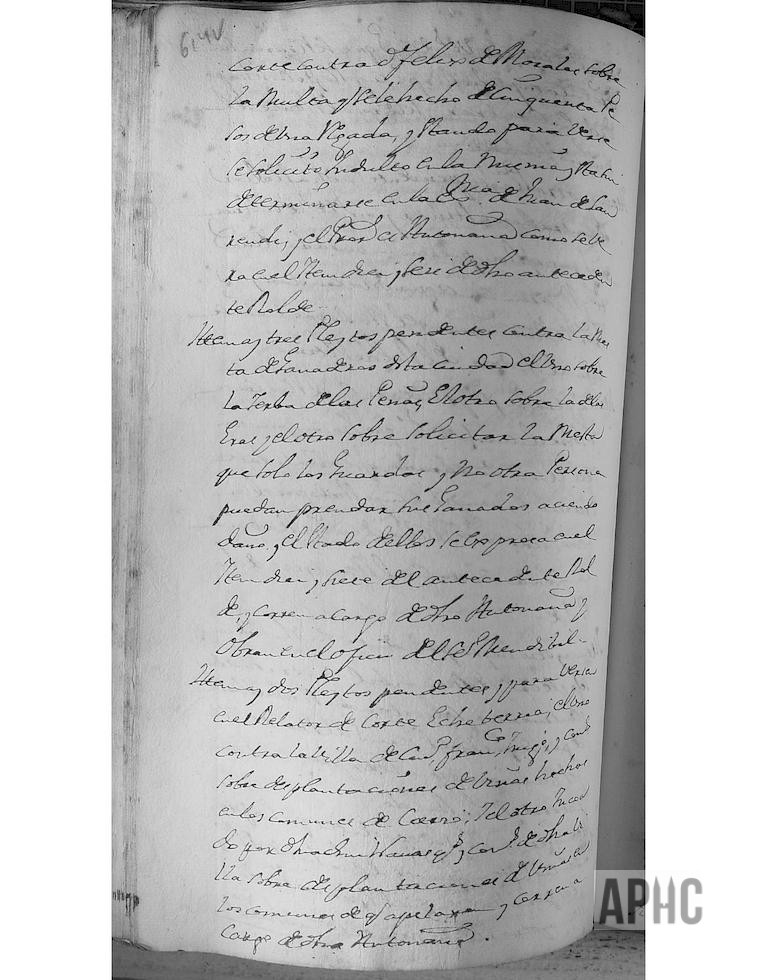 614V
Corte contra Dn Felix de Morales sobre
la Multa q se le ha hecho de Cinquenta Pe
sos de una Vegada, y Stando para Verse
se solicito Indulto en la Misma y Sta sin
determinarse en la de Juan de Lau
rendi, y el Pror Antonana como se ve
ra en el Item diez y seis de dho anteceden
te Rolde
Item ay tres Pleytos pendientes contra la Mes
ta de Ganaderos desta Ciudad el Uno sobre
la Yerba de las Penas, El otro sobre la de las
Eras y el otro sobre solicitar la Mesta
que solo los Guardas y no otra Persona
puedan prendar sus Ganados aciendo
dano, y el Stado dellos se expresa en el
Item diez y siete del antecedente Rol
de, y corren a cargo de dho Antonana y
Obran en el oficio del SS Mendibil
Item ay dos Pleytos pendientes y para Verse
en el Relator de Corte Echeberria, el Uno
contra la Villa de Fran y Conss
sobre desplantaciones de Vinas hechas
en los comunes de ; Y el otro
do por y Conss de dha Vi
lla sobre desplantaciones de Vinas en
los comunes de y corren a
Cargo de dho Antonana.
APHC